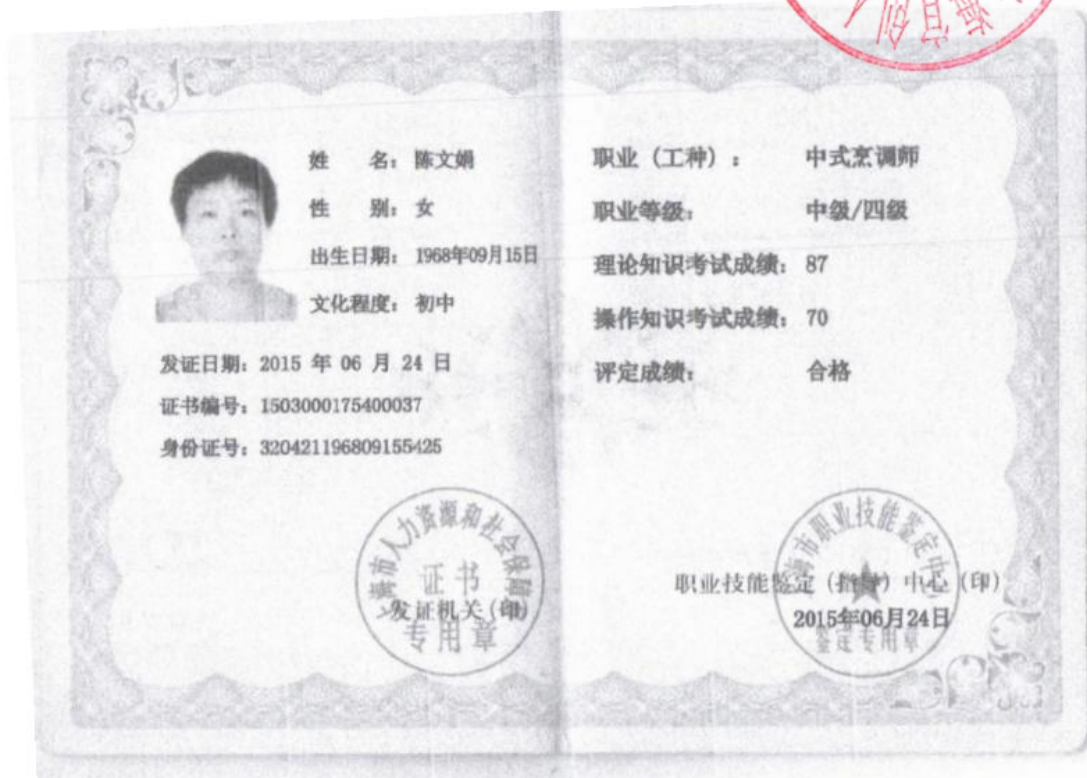 姓 名：陈文娟
性 别：女
出生日期：1968年09月15日
文化程度：初中
发证日期：2015 年 06 月 24 日
证书编号：1503000175400037
身份证号：320421196809155425
上海市人力资源和社会保障
证书
发证机关(印)
专用章
职业（工种）：中式烹调师
职业等级：中级/四级
理论知识考试成绩：87
操作知识考试成绩：70
评定成绩：合格
海市职业技能鉴定中
职业技能鉴定（指导）中心（印）
2015年06月24日
鉴定专用章